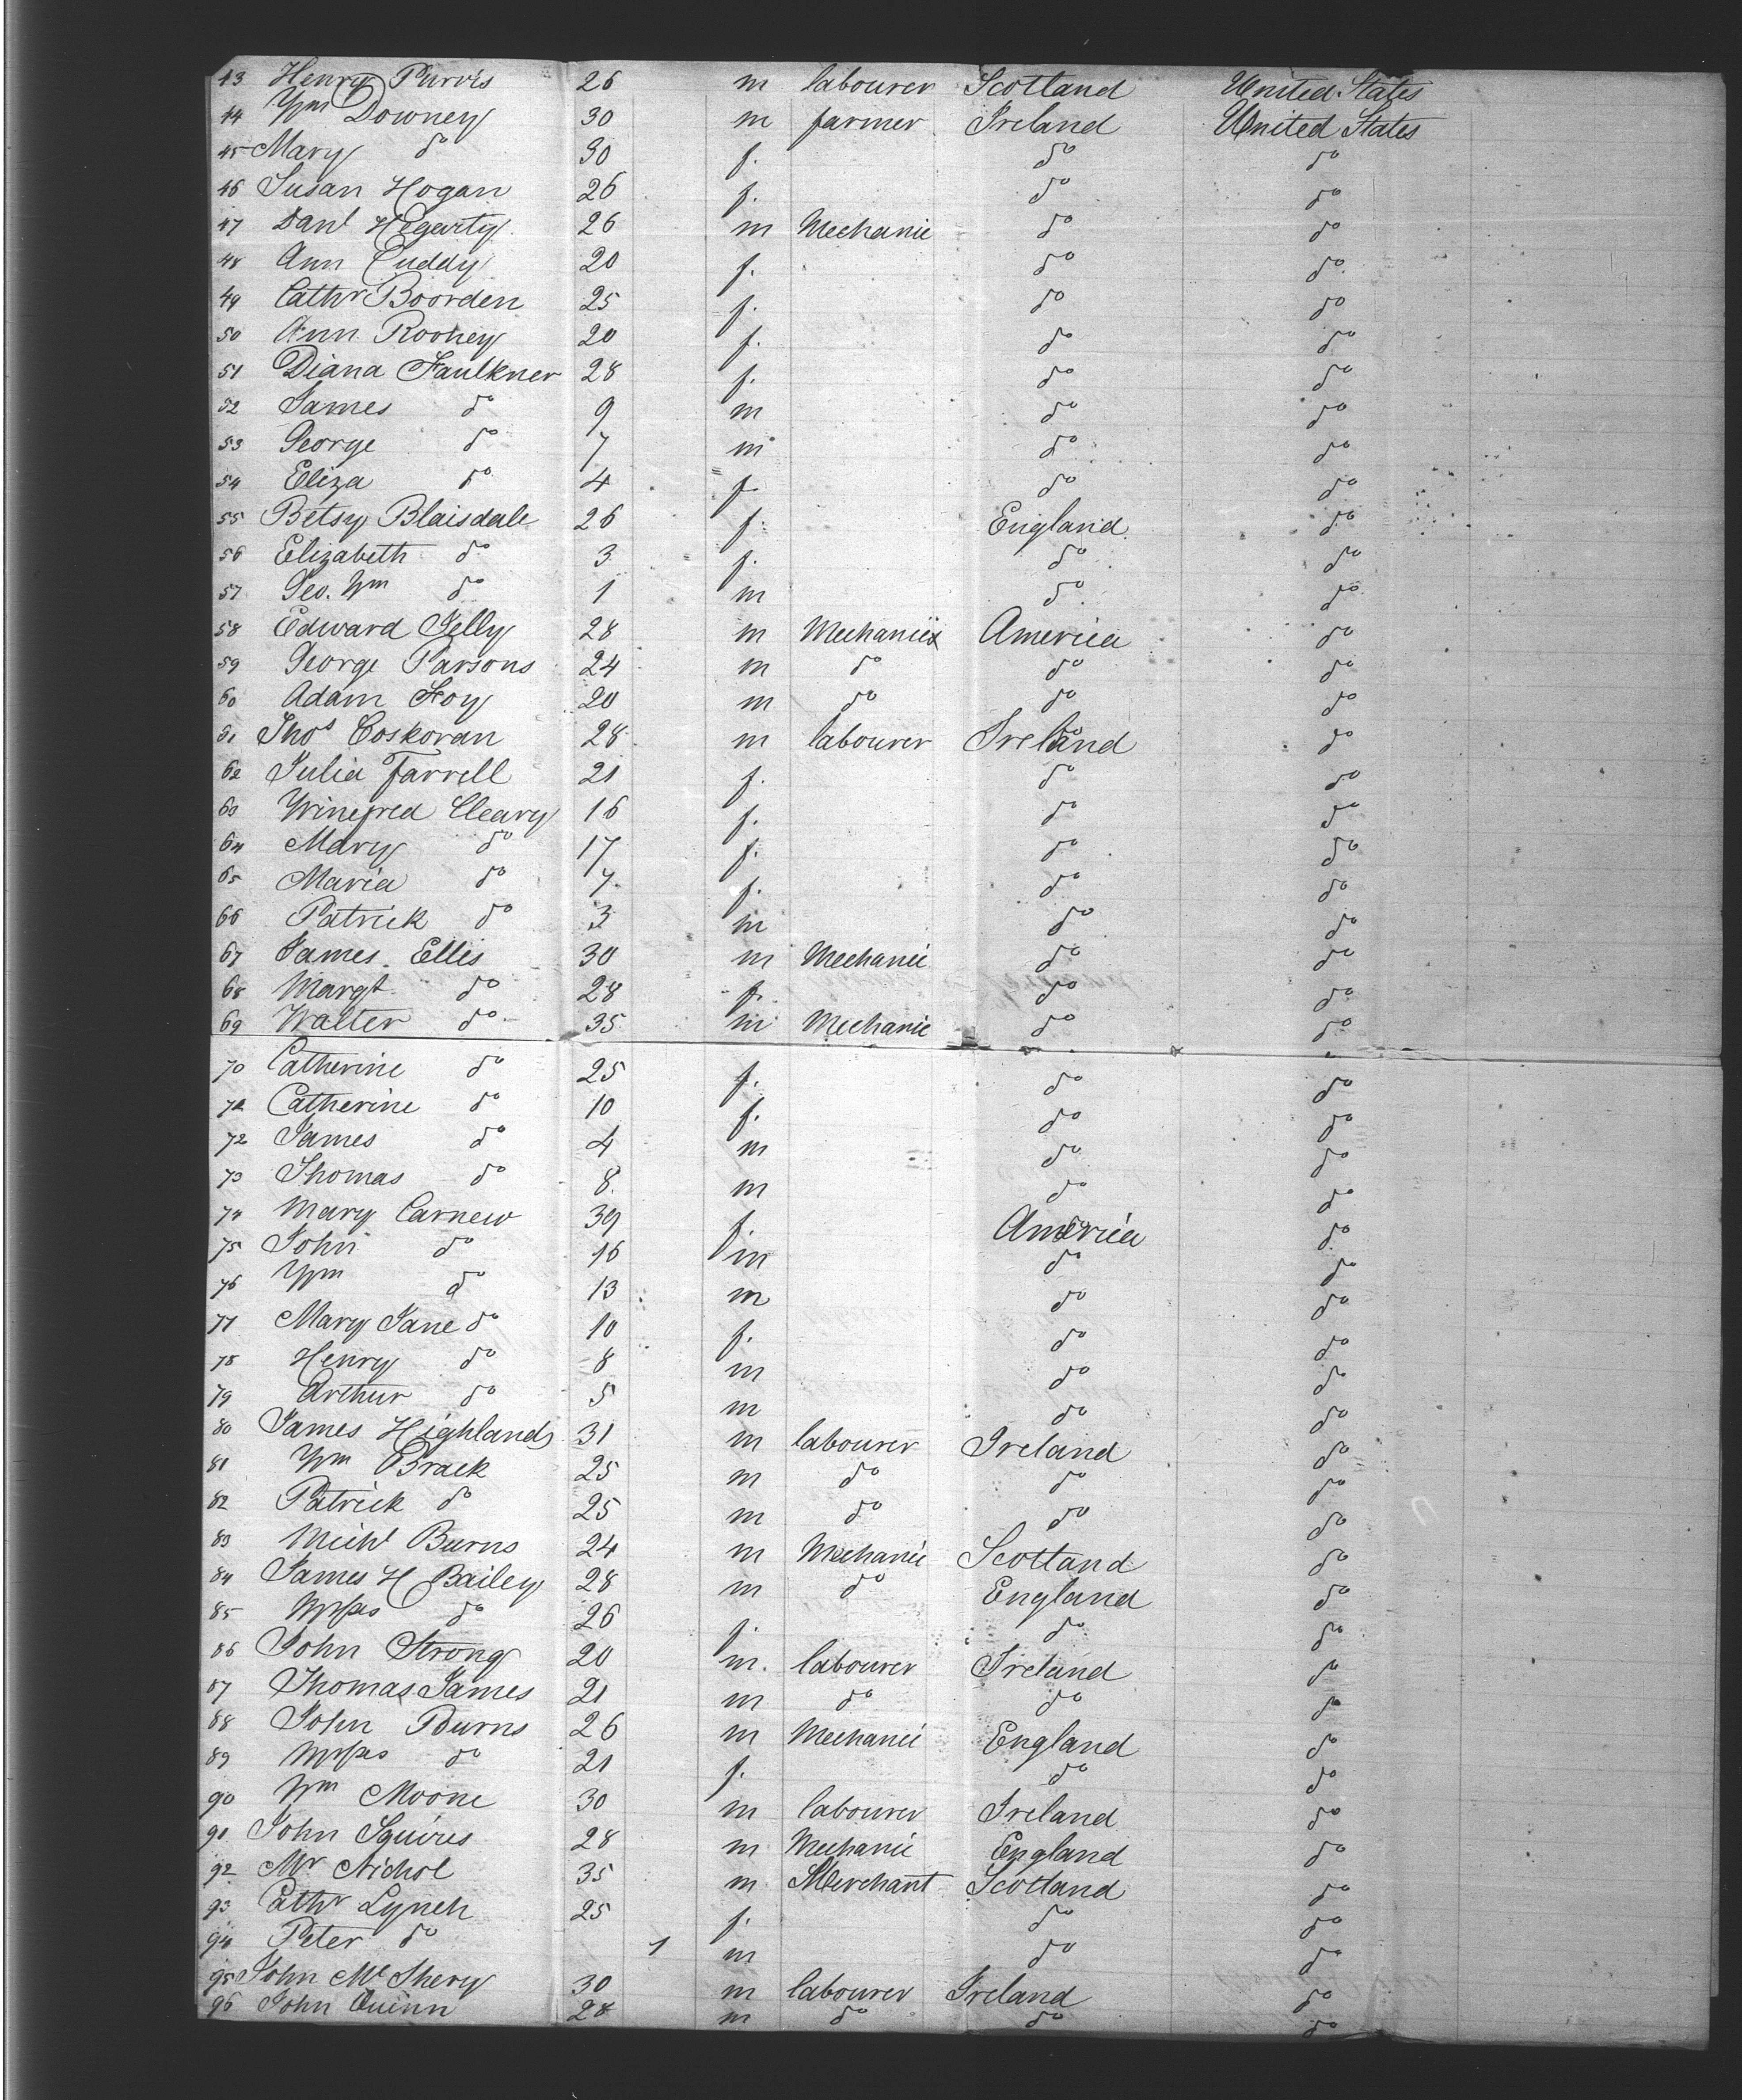 43 Henry Purvis 26 m labourer Scotland United States
44 Wm Downey 30 m farmer Ireland United States
45 Mary do 30 f. do do
46 Susan Hogan 26 f. do do
47 Danl Hegarty 26 m Mechanic do do
48 Ann Cuddy 20 f. do do
49 Cathr Boorden 25 f. do do
50 Ann Rooney 20 f. do do
51 Diana Faulkner 28 f. do do
52 James do 9 m do do
53 George do 7 m do do
54 Eliza do 4 f. do do
55 Betsy Blaisdale 26 f. England do
56 Elizabeth do 3 f. do do
57 Geo. Wm do 1 m do do
58 Edward Jelly 28 m Mechanic America do
59 George Parsons 24 m do do do
60 Adam Foy 20 m do do do
61 Thos Coskoran 28 m labourer Ireland do
62 Julia Farrell 21 f. do do
63 Winefred Cleary 16 f. do do
64 Mary do 17 f. do do
65 Maria do 7 f. do do
66 Patrick do 3 m do do
67 James Ellis 30 m Mechanic do do
68 Margt do 28 f. do do
69 Walter do 35 m Mechanic do do
70 Catherine do 25 f. do do
71 Catherine do 10 f. do do
72 James do 4 m do do
73 Thomas do 8 m do do
74 Mary Carnew 39 f. America do
75 John do 16 m do do
76 Wm do 13 m do do
77 Mary Jane do 10 f. do do
78 Henry do 8 m do do
79 Arthur do 5 m do do
80 James Highlands 31 m labourer Ireland do
81 Wm Brack 25 m do do do
82 Patrick do 25 m do do do
83 Michl Burns 24 m Mechanic Scotland do
84 James H Bailey 28 m do England do
85 do 26 f. do do
86 John Strong 20 m. labourer Ireland do
87 Thomas James 21 m do do do
88 John Burns 26 m Mechanic England do
89 do 21 f. do do
90 Wm Moone 30 m labourer Ireland do
91 John Squires 28 m Mechanic England do
92 Mr Nichol 35 m Merchant Scotland do
93 Cathr Lynch 25 f. do do
94 Peter do 1 m do do
95 John McShery 30 m labourer Ireland do
96 John Quinn 28 m do do do